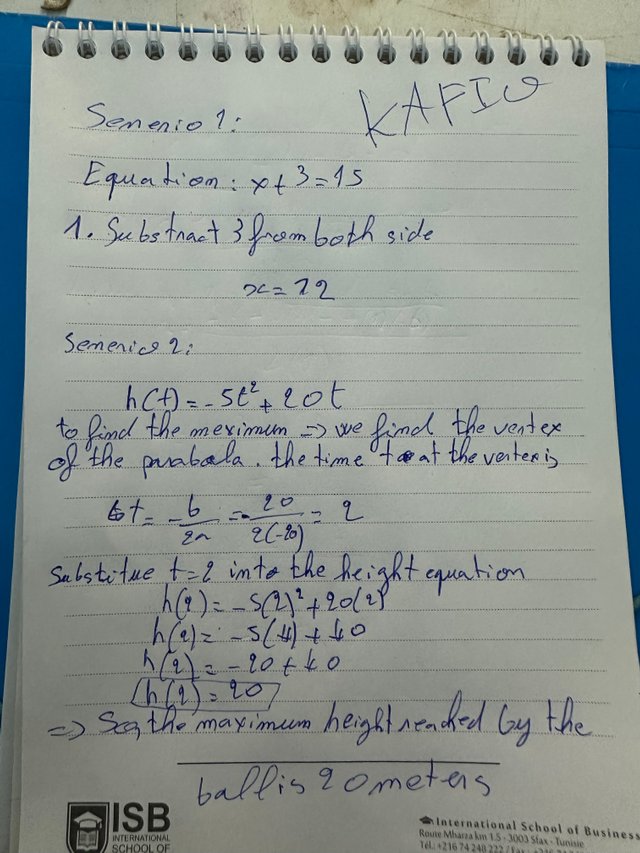 KAFIO
Senerio 1:
Equation: x+3=15
1. Substract 3 from both side
x=12
Senerio 2:
h(t)=-5t²+20t
to find the meximum => we find the vertex
of the parabola. the time t at the vertex is
t=-b/2a=-20/2(-20)=2
Substitue t=2 into the height equation
h(2)=-5(2)²+20(2)
h(2)=-5(4)+40
h(2)=-20+40
h(2)=20
=> So, the maximum height reached by the
ball is 20 meters
ISB
INTERNATIONAL
SCHOOL OF
International School of Business
Route Mharza km 1.5 - 3003 Sfax - Tunisie
Tél.: +216 74 248 222 / Fax: